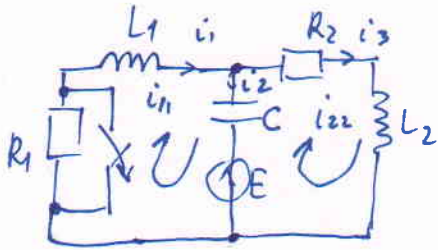 L1 i1 R2 i3
i2
i11 C i22
R1 L2
E